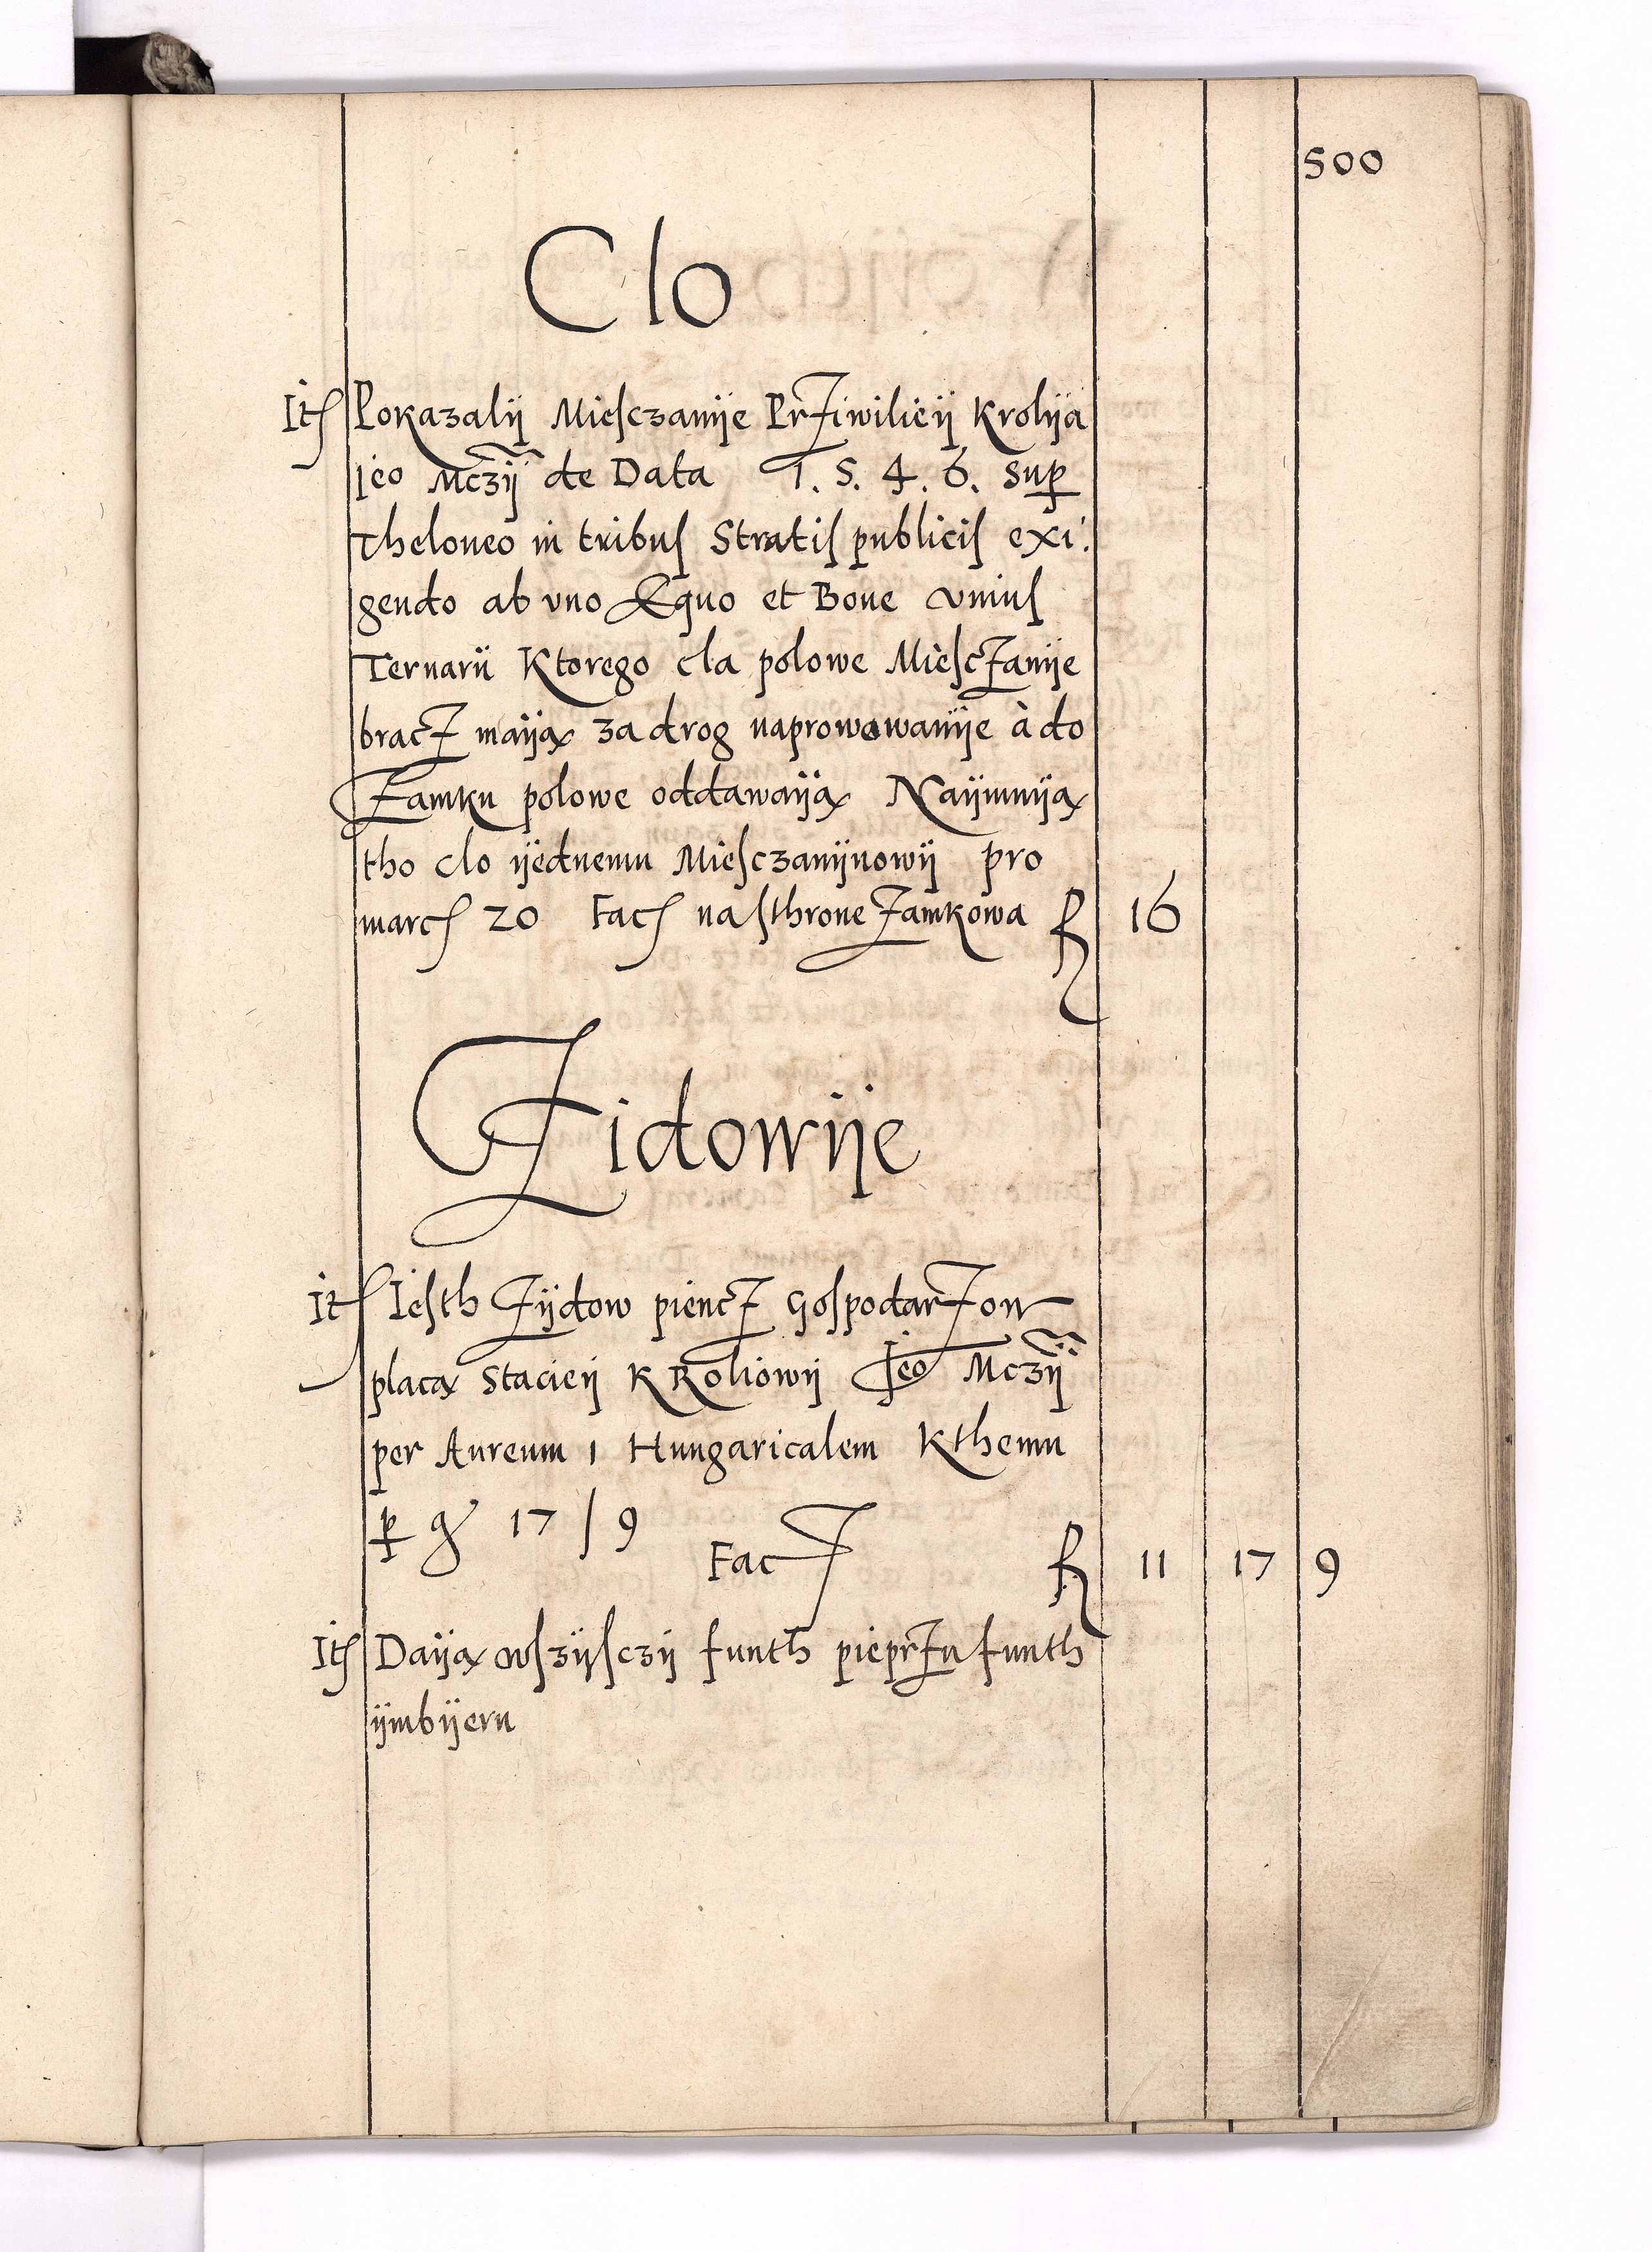 500
Clo
Itꝭ Pokazalij Miesczanije Prziwilieij Krolija
ieo Mczij de Data 1. 5. 4. 6. Suꝑ
Theloneo in tribus Stratis publicis exi.
gendo ab uno Equo et Boue vnius
Ternarij Ktorego cla polowe Miesczanije
bracz maija za drog naprowowanije à do
Zamku polowe oddawaija Naijmuija
tho clo ijednemu Miesczanijnowij pro
marcꝭ 20 Facꝭ na sthrone Zamkowa fl 16
Zidowije
Itꝭ Iesth Zijdow piencz Gospodarzow
placa Stacieij K Roliowij ieo Mczij
per Aureum 1 Hungaricalem Kthemu
ꝑ gr 17 / 9
Facz fl 11 17 9
Itꝭ Daija wszijsczij funth pieprzu funth
ijmbijeru